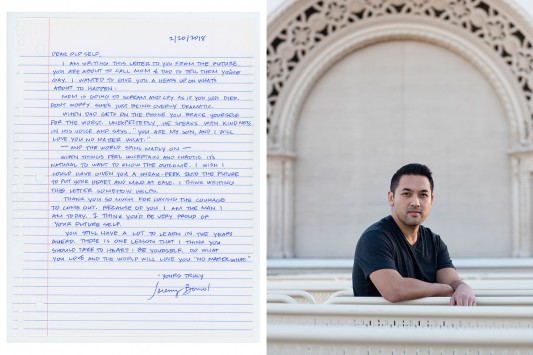 2/20/2018
DEAR OLD SELF,
I AM WRITING THIS LETTER TO YOU FROM THE FUTURE.
YOU ARE ABOUT TO CALL MOM & DAD TO TELL THEM YOU'RE
GAY. I WANTED TO GIVE YOU A HEADS UP ON WHAT'S
ABOUT TO HAPPEN:
MOM IS GOING TO SCREAM AND CRY AS IF YOU JUST DIED.
DON'T WORRY SHE'S JUST BEING OVERLY DRAMATIC.
WHEN DAD GETS ON THE PHONE YOU BRACE YOURSELF
FOR THE WORST. UNEXPECTEDLY, HE SPEAKS WITH KINDNESS
IN HIS VOICE AND SAYS, "YOU ARE MY SON, AND I WILL
LOVE YOU NO MATTER WHAT."
— AND THE WORLD SPINS MADLY ON —
WHEN THINGS FEEL UNCERTAIN AND CHAOTIC, IT'S
NATURAL TO WANT TO KNOW THE OUTCOME. I WISH I
COULD HAVE GIVEN YOU A SNEAK-PEEK INTO THE FUTURE
TO PUT YOUR HEART AND MIND AT EASE. I THINK WRITING
THIS LETTER SOMEHOW HELPS.
THANK YOU SO MUCH FOR HAVING THE COURAGE
TO COME OUT. BECAUSE OF YOU I AM THE MAN I
AM TODAY. I THINK YOU'D BE VERY PROUD OF
YOUR FUTURE SELF.
YOU STILL HAVE A LOT TO LEARN IN THE YEARS
AHEAD. THERE IS ONE LESSON THAT I THINK YOU
SHOULD TAKE TO HEART: BE YOURSELF. DO WHAT
YOU LOVE AND THE WORLD WILL LOVE YOU "NO MATTER WHAT."
- YOURS TRULY
Jeremy